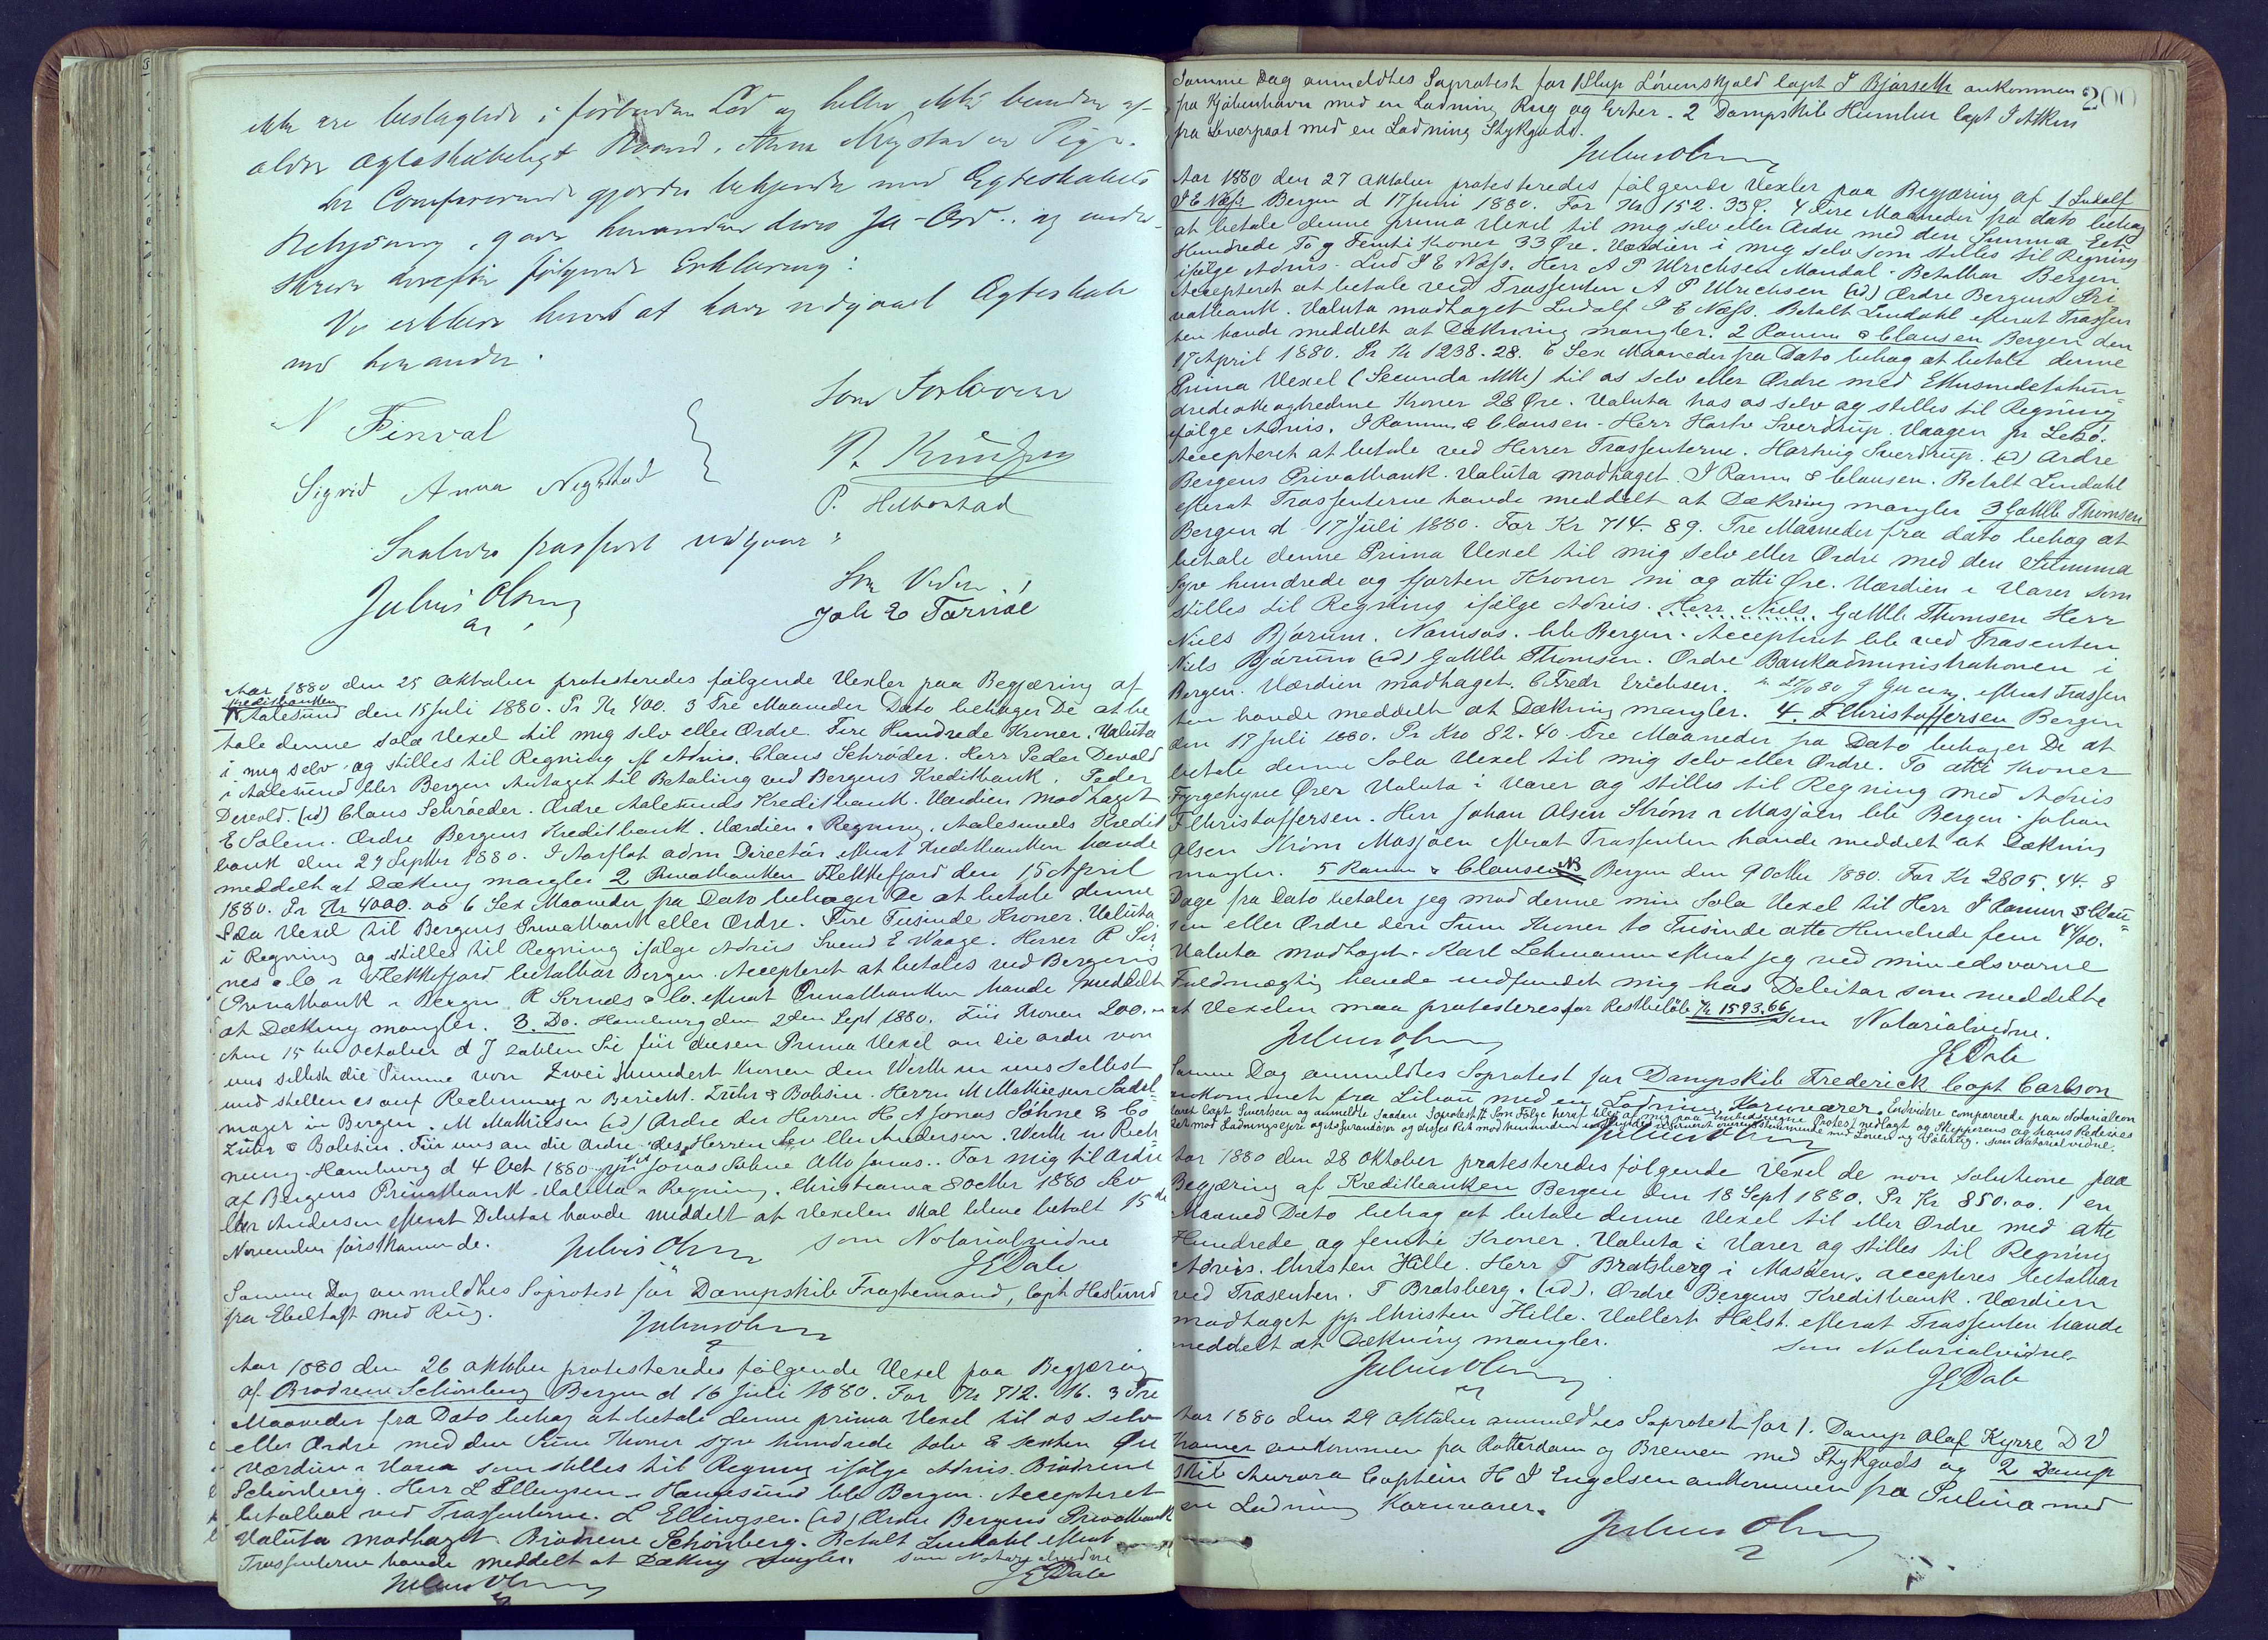 ikke ere beslægtede i forbuden Led og heller ikke bunden af
ældre Ægteskabeligt Baand. Anna Nystad er Pige.
De Comparerende gjordes bekjendt med Ægteskabets
Betydning, gave hinanden deres Ja-Ord, og under-
skrev derefter følgende Erklæring:
Vi erklære herved at have indgaaet Ægteskab
med hinanden.
Som Forlovere
N Finval
P. Knudsen
Sigrid Anna Nystad
P. Helbostad
Saaledes passeret udgaar
Som Vidne
Julius Olsen
Joh E Tornöe
Aar 1880 den 25 Oktober protesteredes følgende Vexler paa Begjæring af
Kreditbanken
1 Aalesund den 15 Juli 1880. Pr Kr 400. 3 Tre Maaneder Dato behager De at be
tale denne sola Vexel til mig selv eller Ordre Fire Hundrede Kroner. Valuta
i mig selv og stilles til Regning efter Advis. Claus Schrøder. Herr Peder Devold
i Aalesund eller Bergen Antaget til Betaling ved Bergens Kreditbank. Peder
Devold. (id) Claus Schrøeder. Ordre Aalesunds Kreditbank. Værdien modtaget
E Solem. Ordre Bergens Kreditbank. Værdien i Regning. Aalesunds Kredit
bank den 27 Septbr 1880. I Aarflot adm Directør efterat Kreditbanken havde
meddelt at Dækning mangler 2 Privatbanken Flekkefjord den 15 April
1880. Pr Kr 4000.00 6 Sex Maaneder fra Dato behager De at betale denne
Sola Vexel til Bergens Privatbank eller Ordre. Fire Tusinde Kroner. Valuta
i Regning og stilles til Regning ifølge Advis Svend E Waage. Herrer R Sir
nes & Co i Flekkefjord betalbar Bergen. Accepteret at betales ved Bergens
Privatbank i Bergen R Sirnes & Co. efterat Privatbanken havde meddelt
at Dækning mangler. 3. Do. Hamburg den 2den Sept 1880. Für Kronen 200.
Am 15 ten October d J zahlen Sie für diesen Prima Vexel an die ordre von
uns selbst die Summe von Zwei Hundert Kronen den Werth in uns selbst
und stellen es auf Rechnung u Bericht. Zühr & Bolesin. Herrn M Mathiesen Sadel
mager in Bergen. M Mathiesen (id) Ordre der Herren H A Jonas Söhne & Co
Zühr & Bolesin. Für uns an die ordre des Herren Lev Eller Andersen. Werth in Rech
nung. Hamburg d 4 Oct 1880 Jonas Sohne Otto Jonas.. For mig til Ordre
af Bergens Privatbank. Valuta i Regning. Christiania 8 Octbr 1880 Lev
Eller Andersen efterat Debitor havde meddelt at Vexelen skal blive betalt 15de
November førstkommende. Julius Olsen som Notarialvidne
J E Dale
Samme Dag anmeldtes Søprotest for Dampskib Fragtemand, Capt Haslund
fra Ebeltoft med Rug.
Julius Olsen
Aar 1880 den 26 Oktober protesteredes følgende Vexel paa Begjæring
af Brødrene Schönberg Bergen d 16 Juli 1880. For Kr 712. 16. 3 Tre
Maaneder fra Dato behag at betale denne prima Vexel til os selv
eller Ordre med den Sum Kroner syv hundrede tolv & sexten Øre
Værdien i Varer som stilles til Regning ifølge Advis. Brødrene
Schönberg. Herr L Ellingsen i Haugesund bb Bergen. Accepteret
betalbar ved Trassenterne. L Ellingsen. (id) Ordre Bergens Privatbank
Valuta modtaget. Brødrene Schönberg. Betalt Lindahl efterat
Trassenterne havde meddelt at Dækning mangler. som Notarialvidne
Julius Olsen J E Dale
200
Samme Dag anmeldtes Søprotest for 1 Slup Løvenskjold Capt I Bjørseth ankommen
fra Kjøbenhavn med en Ladning Rug og Erter. 2 Dampskib Humber Capt J Atkin
fra Liverpool med en Ladning Stykgods.
Julius Olsen
Aar 1880 den 27 Oktober protesteredes følgende Vexler paa Begjæring af 1 Ludolf
I E Næss Bergen d 17 Juni 1880. For Kr 152. 33 Ø. 4 Fire Maaneder fra dato behag
at betale denne prima Vexel til mig selv eller Ordre med den Summa Eet
Hundrede To og Femti Kroner 33 Øre. Værdien i mig selv som stilles til Regning
ifølge Advis. Lud I E Næss. Herr A P Ulrichsen Mandal. Betalbar Bergen
Accepteret at betale ved Trassenten A P Ulrichsen (id) Ordre Bergens Pri
vatbank. Valuta modtaget Ludolf I E Næss. Betalt Lindahl efterat Trassen
ten havde meddelt at Dækning mangler. 2 Ramm & Clausen Bergen den
17 April 1880. Pr Kr 1238.28. 6 Sex Maaneder fra Dato behag at betale denne
Prima Vexel (Secunda ikke) til os selv eller Ordre med Ettusindetohun-
dredeotteogtredive Kroner 28 Øre. Valuta hos os selv og stilles til Regning
ifølge Advis. I Ramm & Clausen. Herr Hartv Sverdrup. Vaagen pr Lekö.
Accepteret at betale ved Herrer Trassenterne. Hartvig Sverdrup. (id) Ordre
Bergens Privatbank. Valuta modtaget. I Ramm & Clausen. Betalt Lindahl
efterat Trassenterne havde meddelt at Dækning mangler 3 Gottlb Thomsen
Bergen d 17 Juli 1880. For Kr 714. 89. Tre Maaneder fra dato behag at
betale denne Prima Vexel til mig selv eller Ordre med den Summa
Syv hundrede og fjorten Kroner ni og otti Øre. Værdien i Varer som
stilles til Regning ifølge Advis. Herr Niels. Gottlb Thomsen Herr
Niels Bjørum. Namsos. bb Bergen. Accepteret bb ved Trasenten
Niels Bjørum (id) Gottlb Thomsen. Ordre Bankadministrationen i
Bergen. Værdien modtaget. C Fredr Erichsen. efterat Trassen
ten havde meddelt at Dækning mangler. 4. F Christoffersen Bergen
den 17 Juli 1880. Pr Kro 82.40 Tre Maaneder fra Dato behager De at
betale denne Sola Vexel til mig selv eller Ordre. To otti Kroner
Fyrgetyve Ører Valuta i Varer og stilles til Regning med Advis
F Christoffersen. Herr Johan Olsen Strøm i Mosjøen bb Bergen. Johan
Olsen Strøm Mosjøen efterat Trassenten havde meddelt at Dækning
mangler. 5 Ramm & Clausen NB Bergen den 9 Octbr 1880. For Kr 2805.44. 8
Dage fra Dato betaler jeg mod denne min Sola Vexel til Herr I Ramm & Clau-
sen eller Ordre den Sum Kroner to Tusinde otte Hundrede fem 44/00.
Valuta modtaget. Karl Lehmann efterat jeg ved min edsvorne
Fuldmægtig havde indfundet mig hos Debitor som meddelte
at Vexelen maa protesteres for Restbeløb Kr 1593.66 Som Notarialvidne.
Julius Olsen
J E Dale
Samme Dag anmeldtes Søprotest for Dampskib Frederick Capt Carlson
ankommet fra Libau med en Ladning Kornvarer. Endvidere comparerede paa Notarialcon
toret Capt Sivertsen og anmeldte saadan Søprotest. Som Følge heraf blev af mig paa Embedsvegne Protest nedlagt og Skipperens og hans Rederies
Ret mod Ladningseiere og Assurandører og disses Ret mod hinanden
Julius Olsen
Aar 1880 den 28 Oktober protesteredes følgende Vexel de non solutione paa
Begjæring af Kreditbanken Bergen den 18 Sept 1880. Pr Kr 850.00. 1 en
Maaned Dato behag at betale denne Vexel til eller Ordre med otte
Hundrede og femti Kroner. Valuta i Varer og stilles til Regning
Advis. Christen Hille. Herr T Bratsberg i Mosöen. accepteres betalbar
ved Trasenten. T Bratsberg. (id). Ordre Bergens Kreditbank. Værdien
modtaget pp Christen Hille. Vollert Holst. efterat Trassenten havde
meddelt at Dækning mangler. som Notarialvidne
Julius Olsen
J E Dale
Aar 1880 den 29 Oktober anmeldtes Søprotest for 1. Damp Olaf Kyrre D V
Kramer ankommen fra Rotterdam og Bremen med Stykgods og 2 Damp
skib Aurora Captein H I Engelsen ankommen fra Sulina med
en Ladning Kornvarer.
Julius Olsen